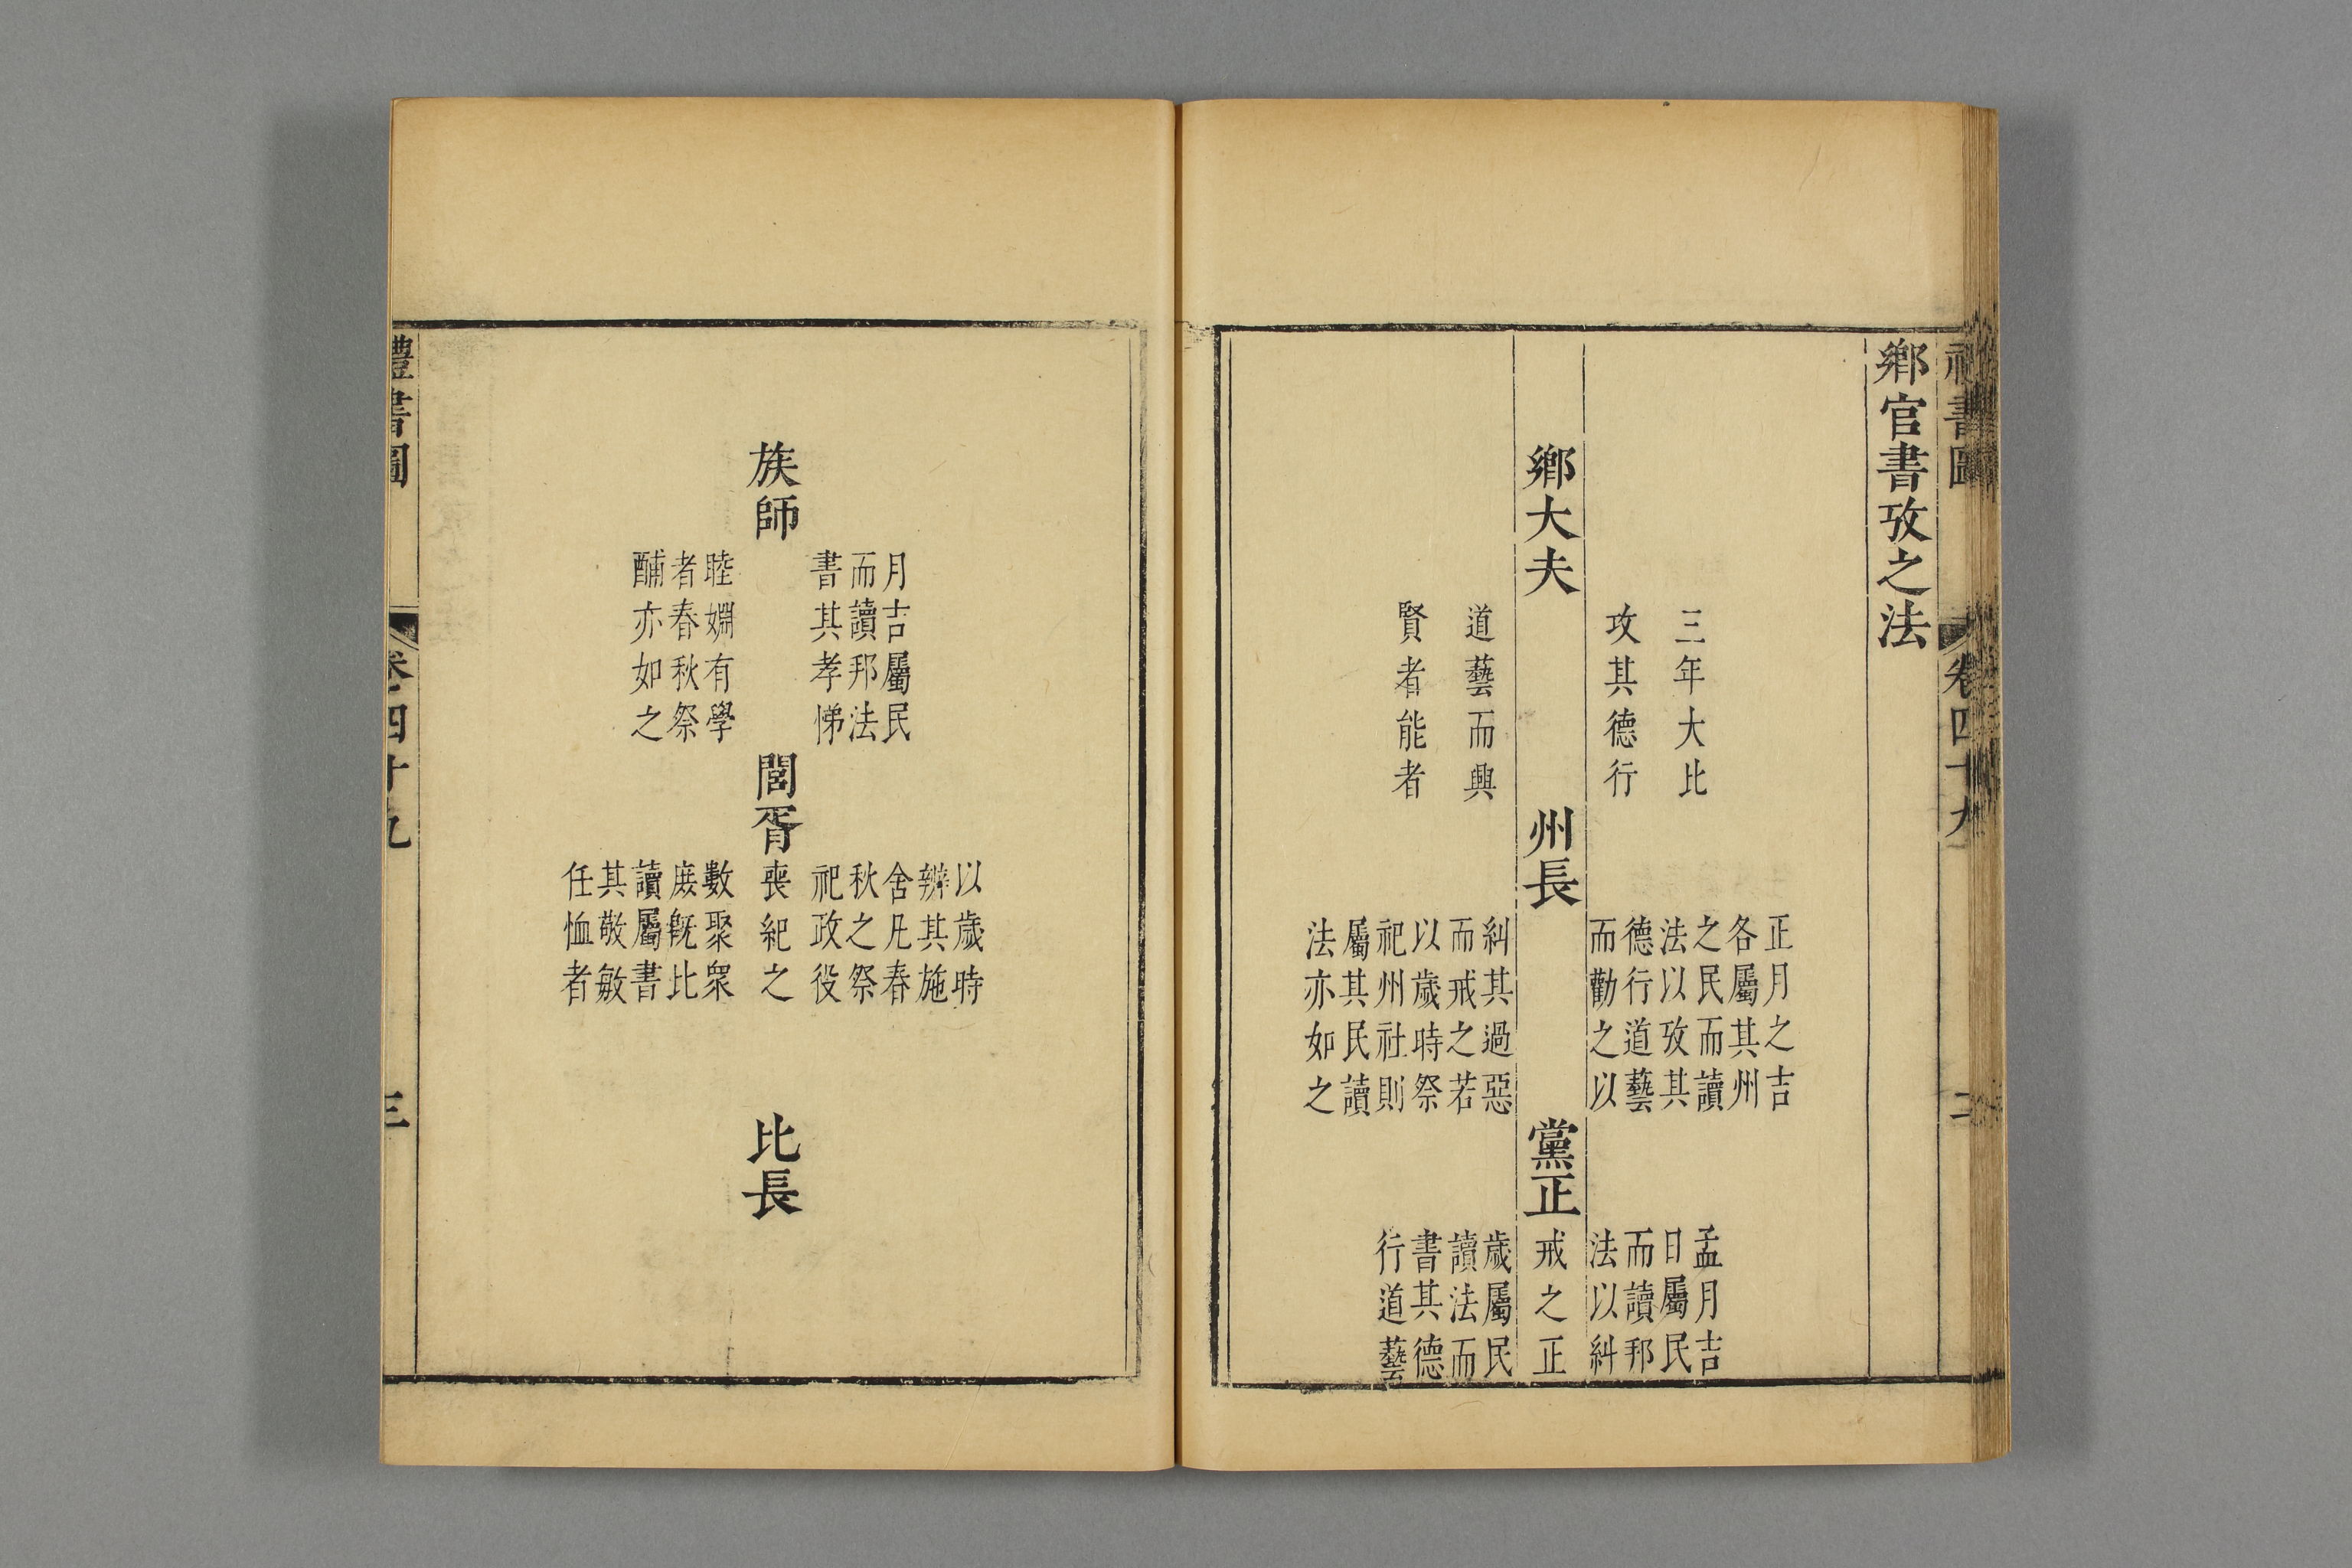 書圖 卷四十九 二
鄉官書攷之法
鄉大夫
三年大比
攻其德行
道藝而興
賢者能者
州長
正月之吉
各屬其州
之民而讀
法以攷其
德行道藝
而勸之以
糾其過惡
而戒之若
以歲時祭
祀州社則
屬其民讀
法亦如之
黨正
孟月吉
日屬民
而讀邦
法以糾
戒之正
歲屬民
讀法而
書其德
行道藝
族師
月吉屬民
而讀邦法
書其孝悌
睦婣有學
者春秋祭
酺亦如之
閭胥
以歲時
辨其施
舍凡春
秋之祭
祀政役
喪紀之
數聚衆
庻旣比
讀屬書
其敬敏
任恤者
比長
禮書圖 卷四十九 三